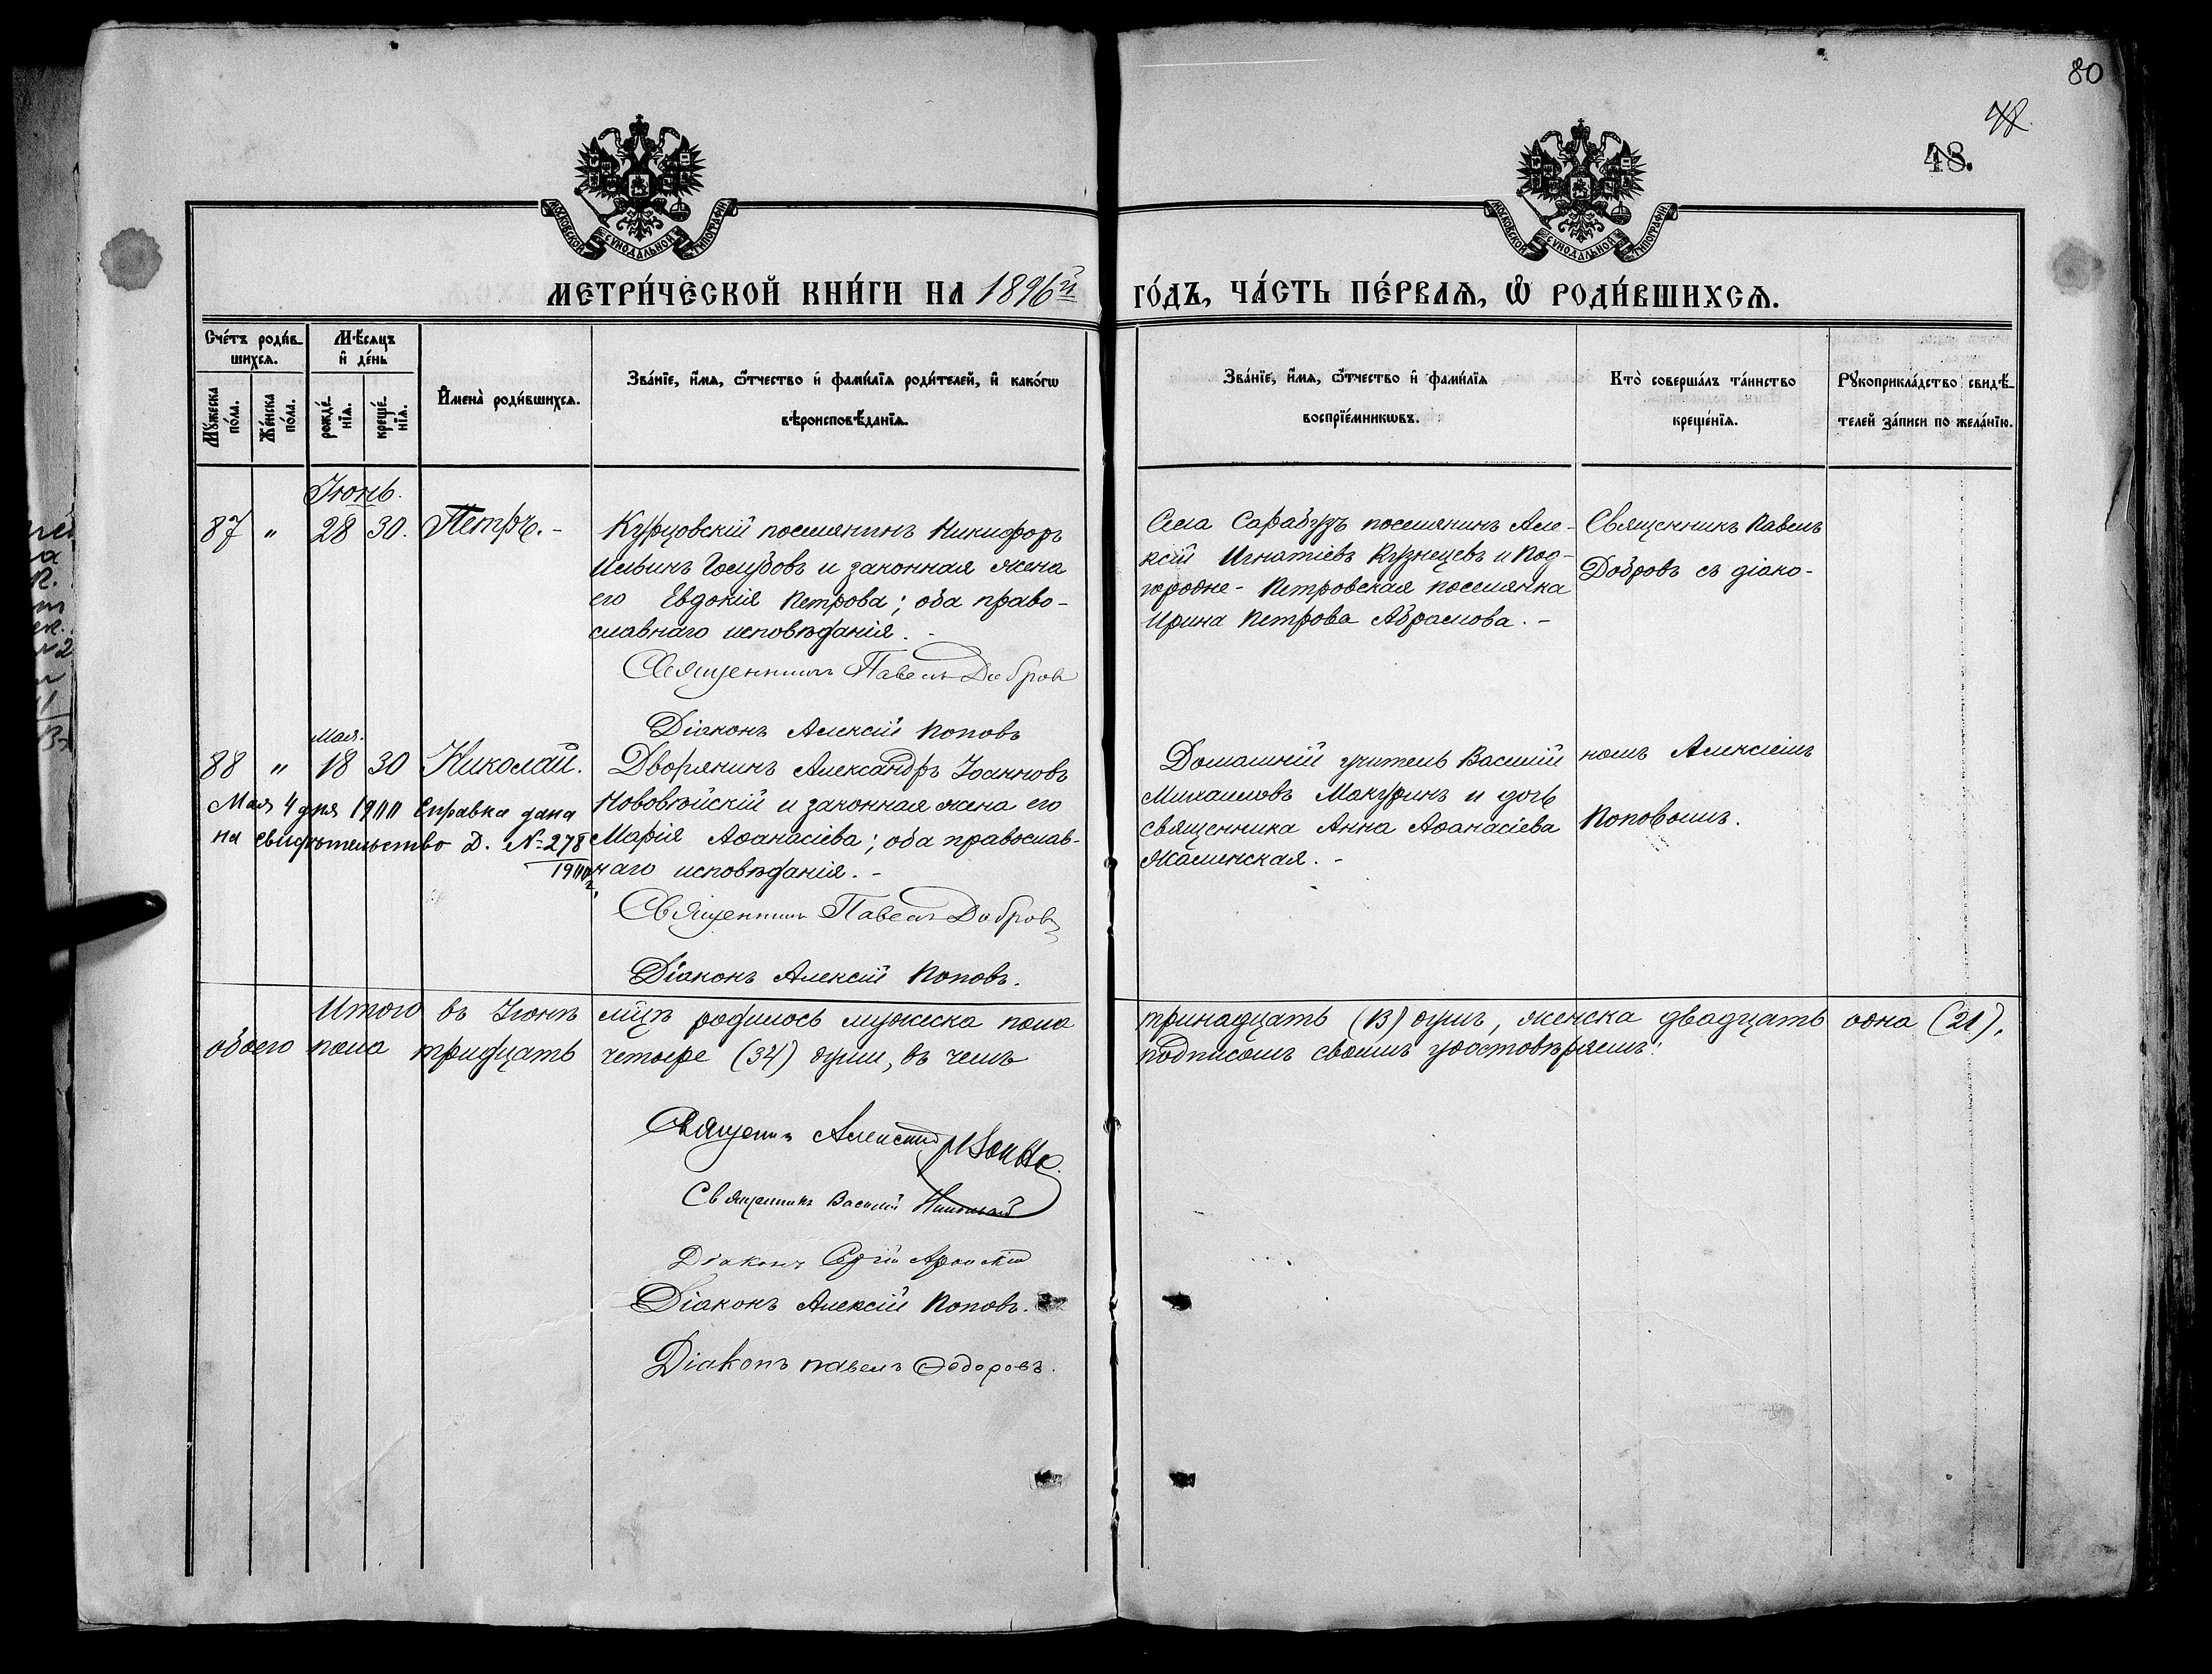 80
48.
МОСКОВСКОЙ СѴНОДАЛЬНОЙ ТИПОГРАФІИ
МОСКОВСКОЙ СѴНОДАЛЬНОЙ ТИПОГРАФІИ
МЕТРИ́ЧЕСКОЙ КНИ́ГИ НА 1896й
ГО́ДЪ, ЧА́СТЬ ПЕ́РВАѦ, Ѡ РОДИ́ВШИХСѦ.
Сче́тъ роди́в-
шихсѧ.
Мꙋ́жеска по́ла.
Же́нска по́ла.
Мѣ́сѧцъ
и҆ де́нь
рожде́-нїѧ.
креще́-нїѧ.
И҆мена̀ роди́вшихсѧ.
Зва́нїе, и҆́мѧ, ѻ҆́тчество и҆ фами́лїѧ роди́телей, и҆ како́гѡ
вѣроисповѣ́данїѧ.
Зва́нїе, и҆́мѧ, ѻ҆́тчество и҆ фами́лїѧ
воспрїе́мникѡвъ.
Кто̀ соверша́лъ та́инство
креще́нїѧ.
Рꙋкоприкла́дство свидѣ́-
телей за́писи по жела́нїю.
Іюнь.
87 " 28 30. Петръ.-
Курцовскій поселянинъ Никифоръ
Ильинъ Голубовъ и законная жена
его Евдокія Петрова; оба право-
славнаго исповѣданія. -
Священникъ Павелъ Добровъ
Діаконъ Алексій Поповъ
Села Сарабузъ поселянинъ Але-
ксій Игнатіевъ Кузнецевъ и Под-
городне- Петровская поселянка
Ирина Петрова Абрамова. -
Священникъ Павелъ
Добровъ съ діако-
мая.
88 " 18 30 Николай.
Мая 4 дня 1900 Справка дана
на свидѣтельство Д. № 278
1900 г.
Дворянинъ Александръ Іоанновъ
Нововейскій и законная жена его
Марія Аѳанасіева; оба православ-
наго исповѣданія. -
Священникъ Павелъ Добровъ
Діаконъ Алексій Поповъ.
Домашній учитель Василій
Михаиловъ Макуринъ и дочь
священника Анна Аѳанасіева
Жалинская. -
номъ Алексіемъ
Поповымъ.
Итого въ Іюнѣ мцѣ родилось мужеска пола тринадцать (13) душъ, женска двадцать одна (21),
обоего пола тридцать четыре (34) души, въ чемъ подписомъ своимъ удостовѣряемъ:
Священникъ
Священникъ Василій Никольскій
Діаконъ Сергій
Діаконъ Алексій Поповъ.
Діаконъ Павелъ Ѳедоровъ.